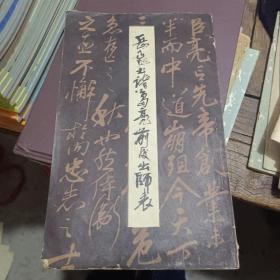 岳飞书诸葛亮前后出师表
臣亮言先帝
业未
半而中道崩殂今天下三
危急存
亡之秋也然侍衛
之臣不懈
於内忠志之士